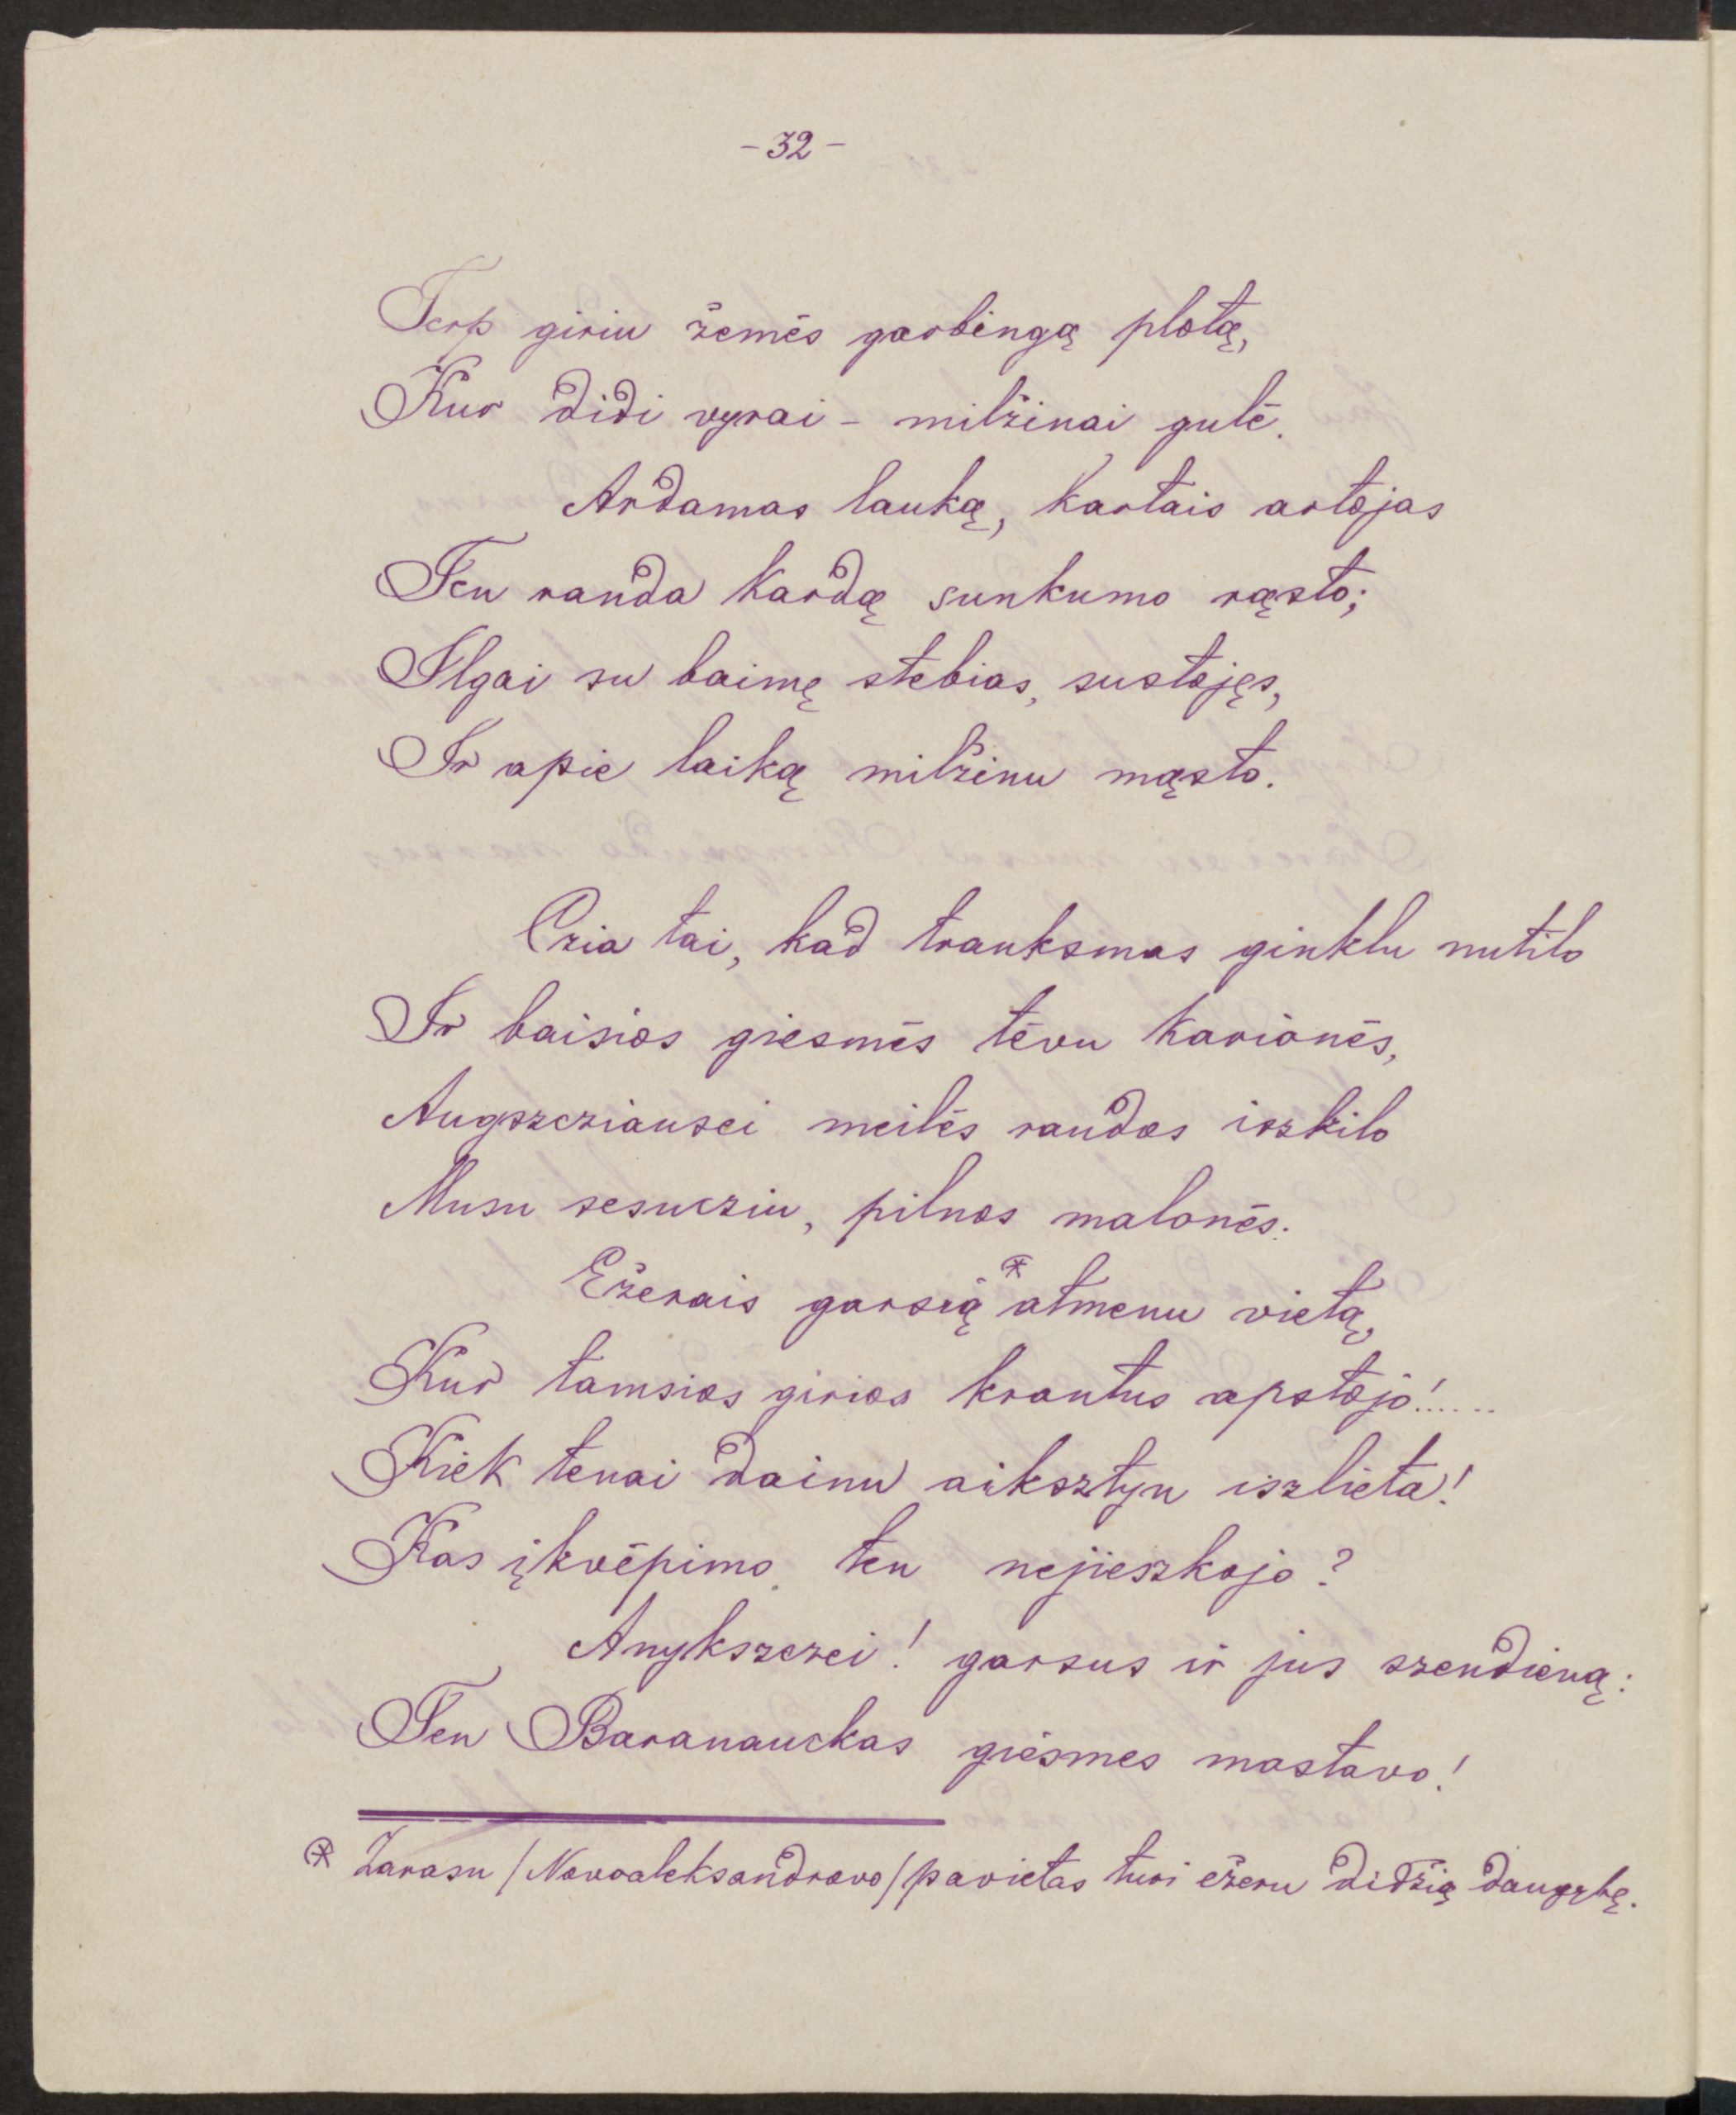 - 32 -
Terp giriu žemės garbingą plotą,
Kur didi vyrai - milžinai gulė.
Ardamas lauką, kartais artojas
Ten randa kardą sunkumo rąsto;
Ilgai su baimę stebias, sustojęs,
Ir apie laiką milžinu mąsto.
Czia tai, kad trauksmas ginklu nutilo
Ir baisios giesmės tėvu karionės,
Augszcziausei meilės raudos iszkilo
Musu sesucziu, pilnos malonės.
Ežerais garsią * atmenu vietą,
Kur tamsios girios krantus apstojo!.....
Kiek tenai dainu aiksztyn iszlieta!
Kas įkvėpimo ten nejieszkojo?
Anykszczei! garsus ir jus szendieną:
Ten Baranauckas giesmes mastavo!
* Zarasu /Novoaleksandrovo/ pavietas turi ežeru didžią daugybę.